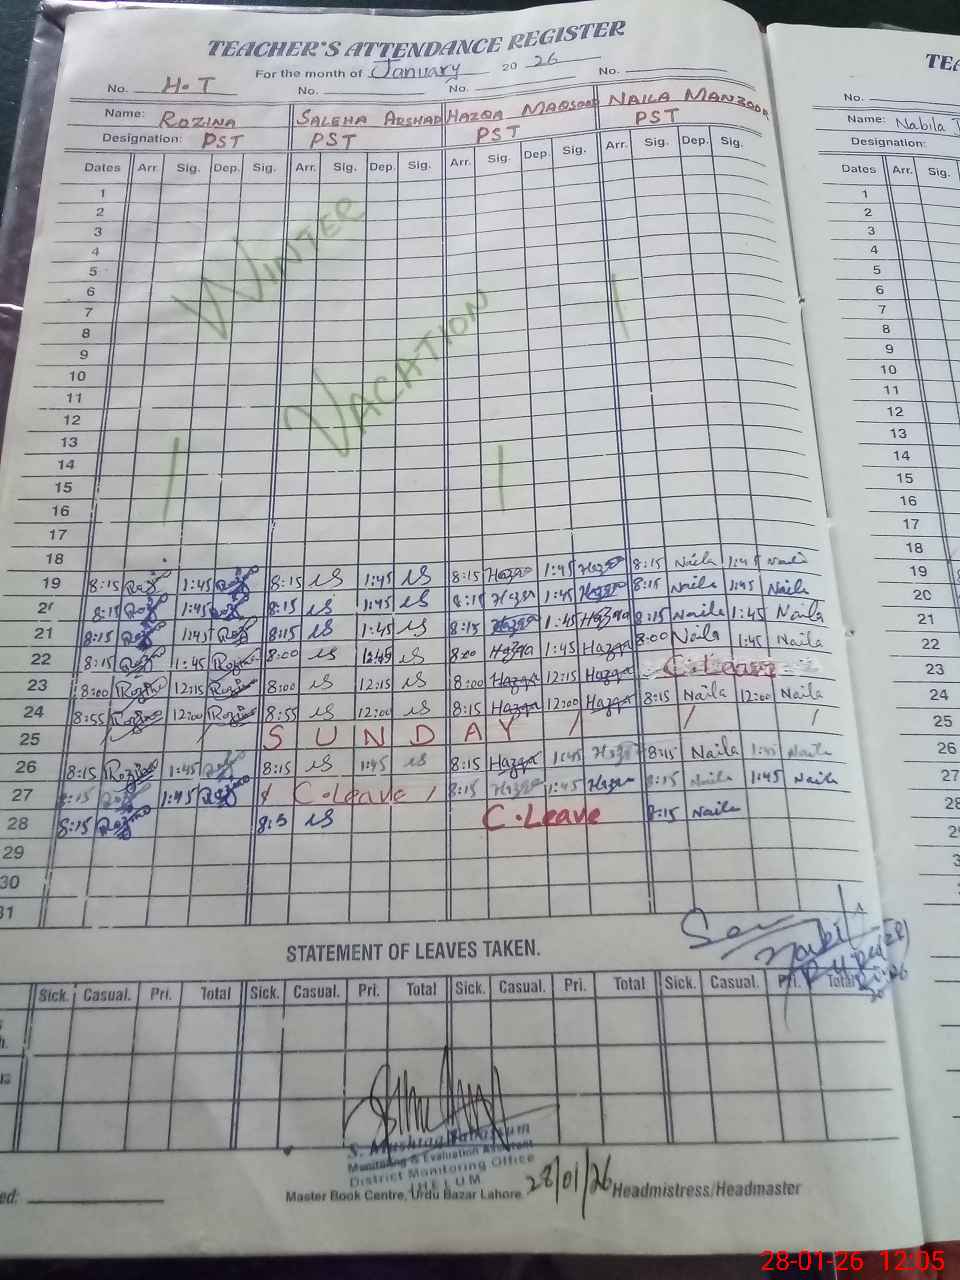 TEACHER'S ATTENDANCE REGISTER
For the month of January 2026
No. H.T No. No. No.
Name: ROZINA SALEHA ARSHAD HAZQA MAQSOOD NAILA MANZOOR
Designation: PST PST PST PST
Dates Arr. Sig. Dep. Sig. Arr. Sig. Dep. Sig. Arr. Sig. Dep. Sig. Arr. Sig. Dep. Sig.
1
2
3
4
5
6
7
8
9
10
11
12
13
14
15
16
17
18
WINTER
VACATION
19 8:15 1:45 8:15 1:45 8:15 Hazqa 1:45 8:15 Naila 1:45 Naila
20 8:15 1:45 8:15 1:45 8:15 1:45 8:15 Naila 1:45 Naila
21 8:15 1:45 8:15 1:45 8:15 1:45 Hazqa 8:15 Naila 1:45 Naila
22 8:15 1:45 Rozina 8:00 12:45 8:00 Hazqa 1:45 Hazqa 8:00 Naila 1:45 Naila
23 8:00 Rozina 12:15 Rozina 8:00 12:15 8:00 Hazqa 12:15 Hazqa C.Leave
24 8:55 Rozina 12:00 Rozina 8:55 12:00 8:15 Hazqa 12:00 Hazqa 8:15 Naila 12:00 Naila
25 SUNDAY
26 8:15 Rozina 1:45 8:15 1:45 8:15 Hazqa 1:45 8:15 Naila 1:45 Naila
27 8:15 1:45 C.Leave 8:15 Hazqa 1:45 Hazqa 8:15 Naila 1:45 Naila
28 8:15 C.Leave 8:15 Naila
29
30
31
STATEMENT OF LEAVES TAKEN.
Sick. Casual. Pri. Total Sick. Casual. Pri. Total Sick. Casual. Pri. Total Sick. Casual. Pri. Total
Monitoring & Evaluation Assistant
District Monitoring Office
JHELUM
Master Book Centre, Urdu Bazar Lahore. 28/01/26 Headmistress/Headmaster
No.
Name: Nabila
Designation:
Dates Arr. Sig.
1
2
3
4
5
6
7
8
9
10
11
12
13
14
15
16
17
18
19
20
21
22
23
24
25
26
27
28
28-01-26 12:05